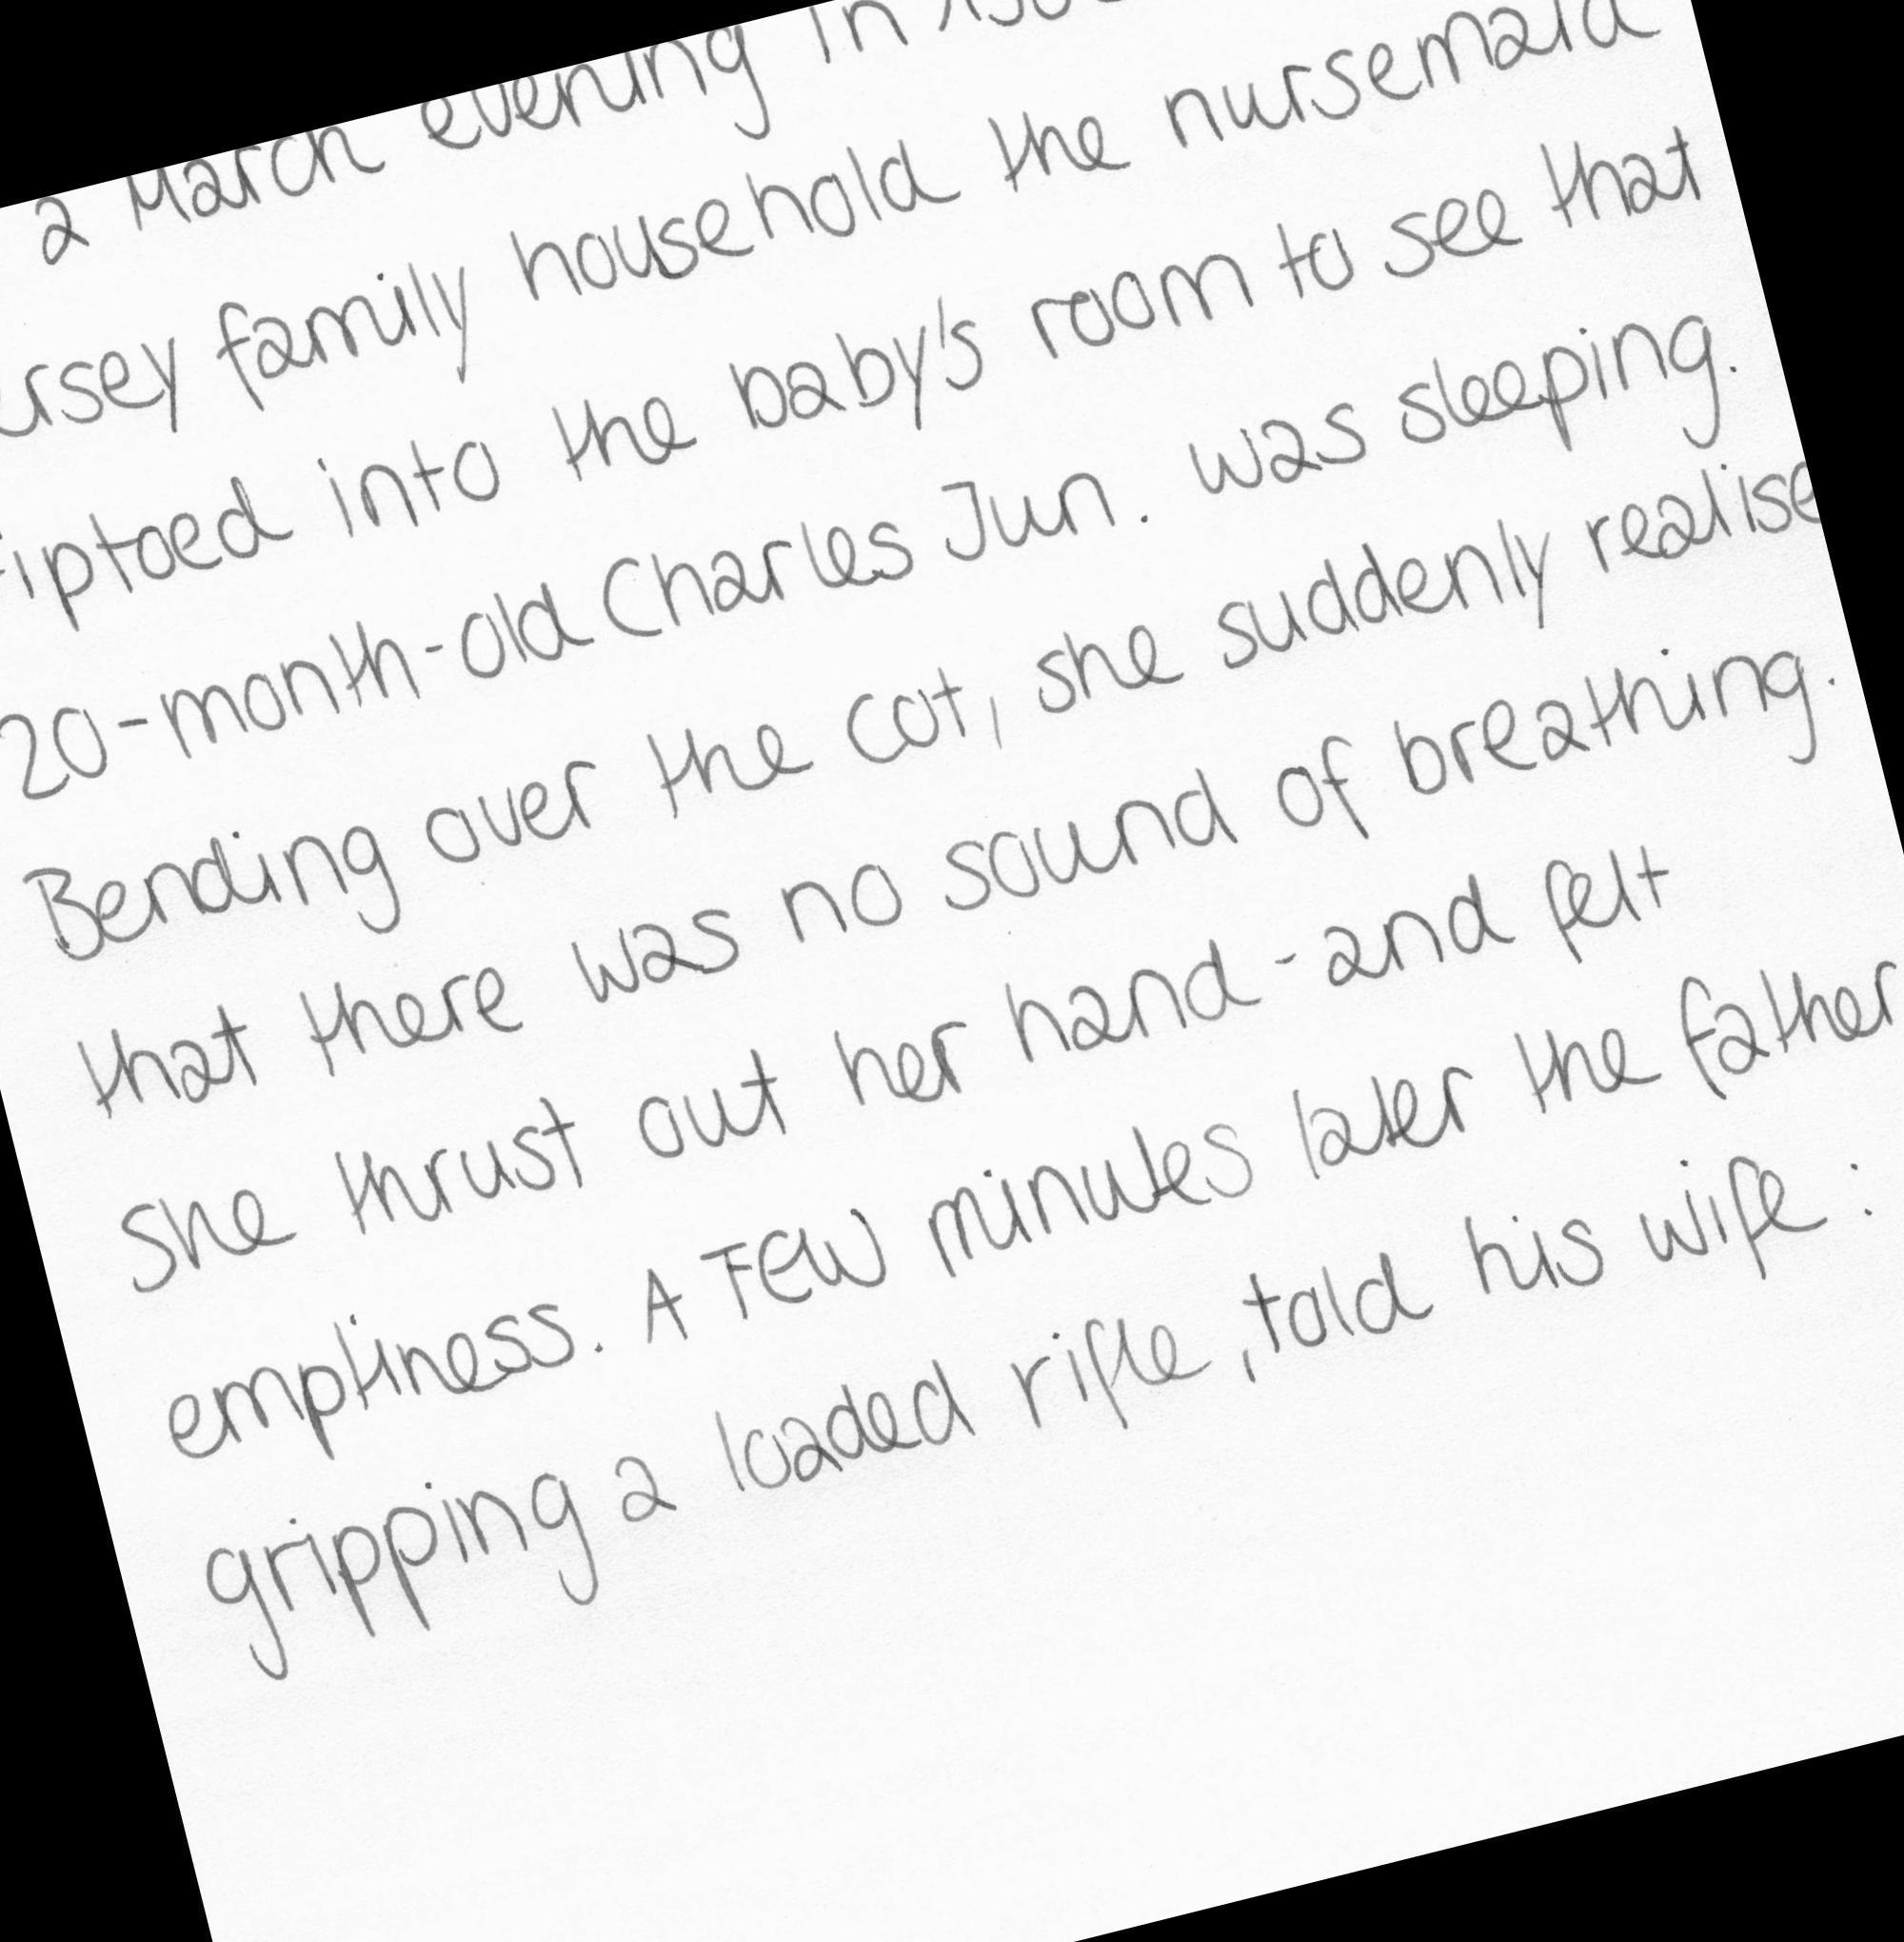 a March evening in
family household the nursemaid
tiptoed into the baby's room to see that
20-month-old Charles Jun. was sleeping.
Bending over the cot, she suddenly realise
that there was no sound of breathing.
She thrust out her hand - and felt
emptiness. A FEW minutes later the father
gripping a loaded rifle, told his wife :